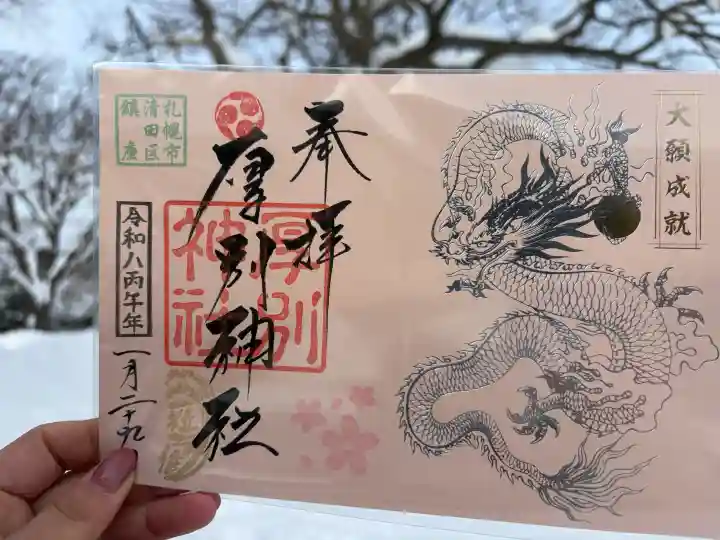 大願成就
奉拝
厚別神社
厚別
神社
札幌市
清田区
鎮座
令和八丙午年
一月二十九